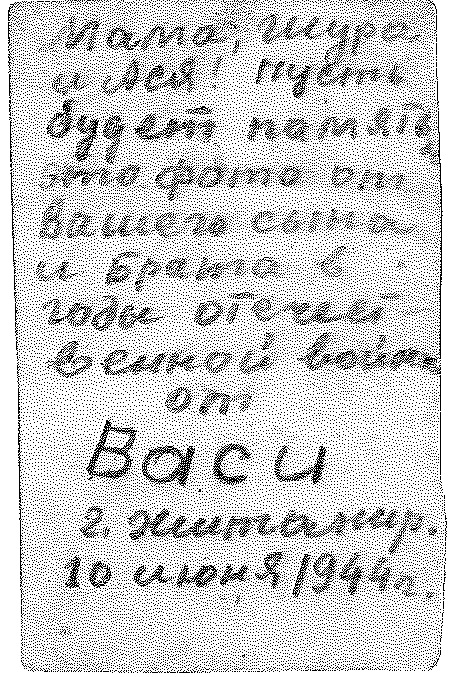 Мама, Шура
и Ася! Пусть
будет память
это фото от
вашего сына
и брата в
годы отечест
венной войны
от
Васи
г. Житомир.
10 июня 1944г.